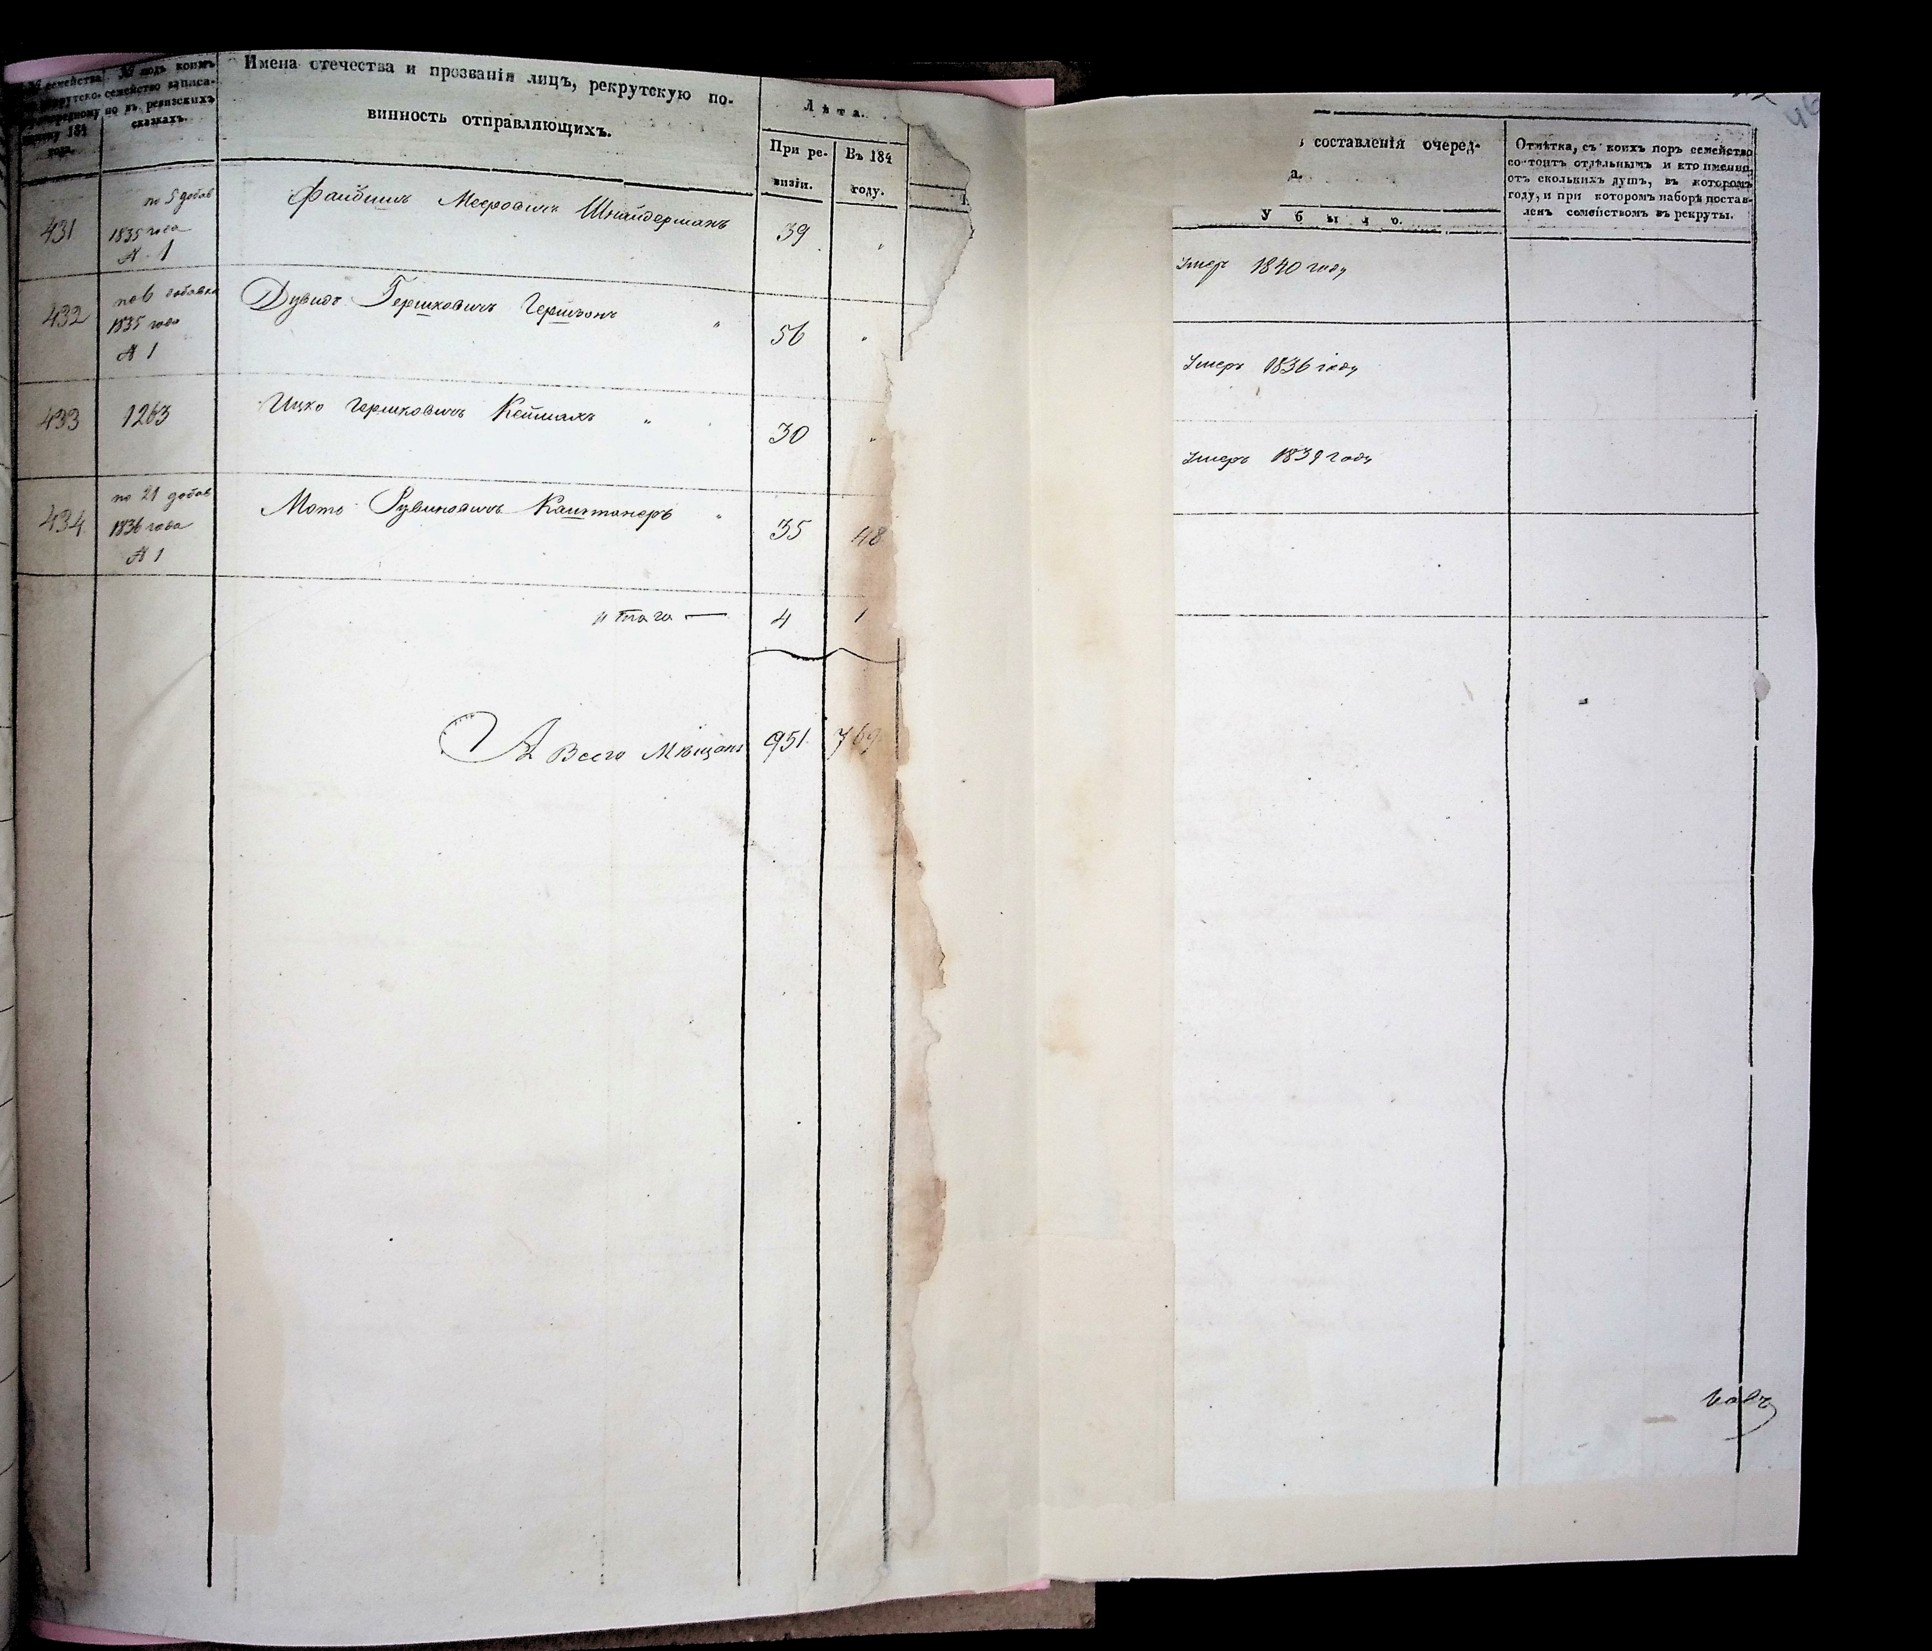 № семейства
№ подъ коимъ
семейство записа-
но въ ревизскихъ
сказкахъ.
184
года.
Имена отечества и прозванія лицъ, рекрутскую по-
винность отправляющихъ.
Лѣта.
При ре-
визіи.
Въ 184
году.
составленія очеред-
а.
Убыло.
Отмѣтка, съ коихъ поръ семейство
состоитъ отдѣльнымъ и кто именно,
отъ сколькихъ душъ, въ которомъ
году, и при которомъ наборѣ постав-
ленъ семействомъ въ рекруты.
431
по 5 добав
1835 года
№ 1
Файвишъ Мееровичъ Шнайдерманъ
39
"
умеръ 1840 году
432
по 6 добавке
1835 года
№ 1
Дувидъ Гершковичъ Гершзонъ "
56
"
умеръ 1836 году
433
1263
Ицко Гершковичъ "
30
"
умеръ 1839 году
434
по 21 добав
1836 года
№ 1
Рувиновичъ Каштанеръ "
35
48
итого —
4
1
А Всего Мѣщанъ
951
769